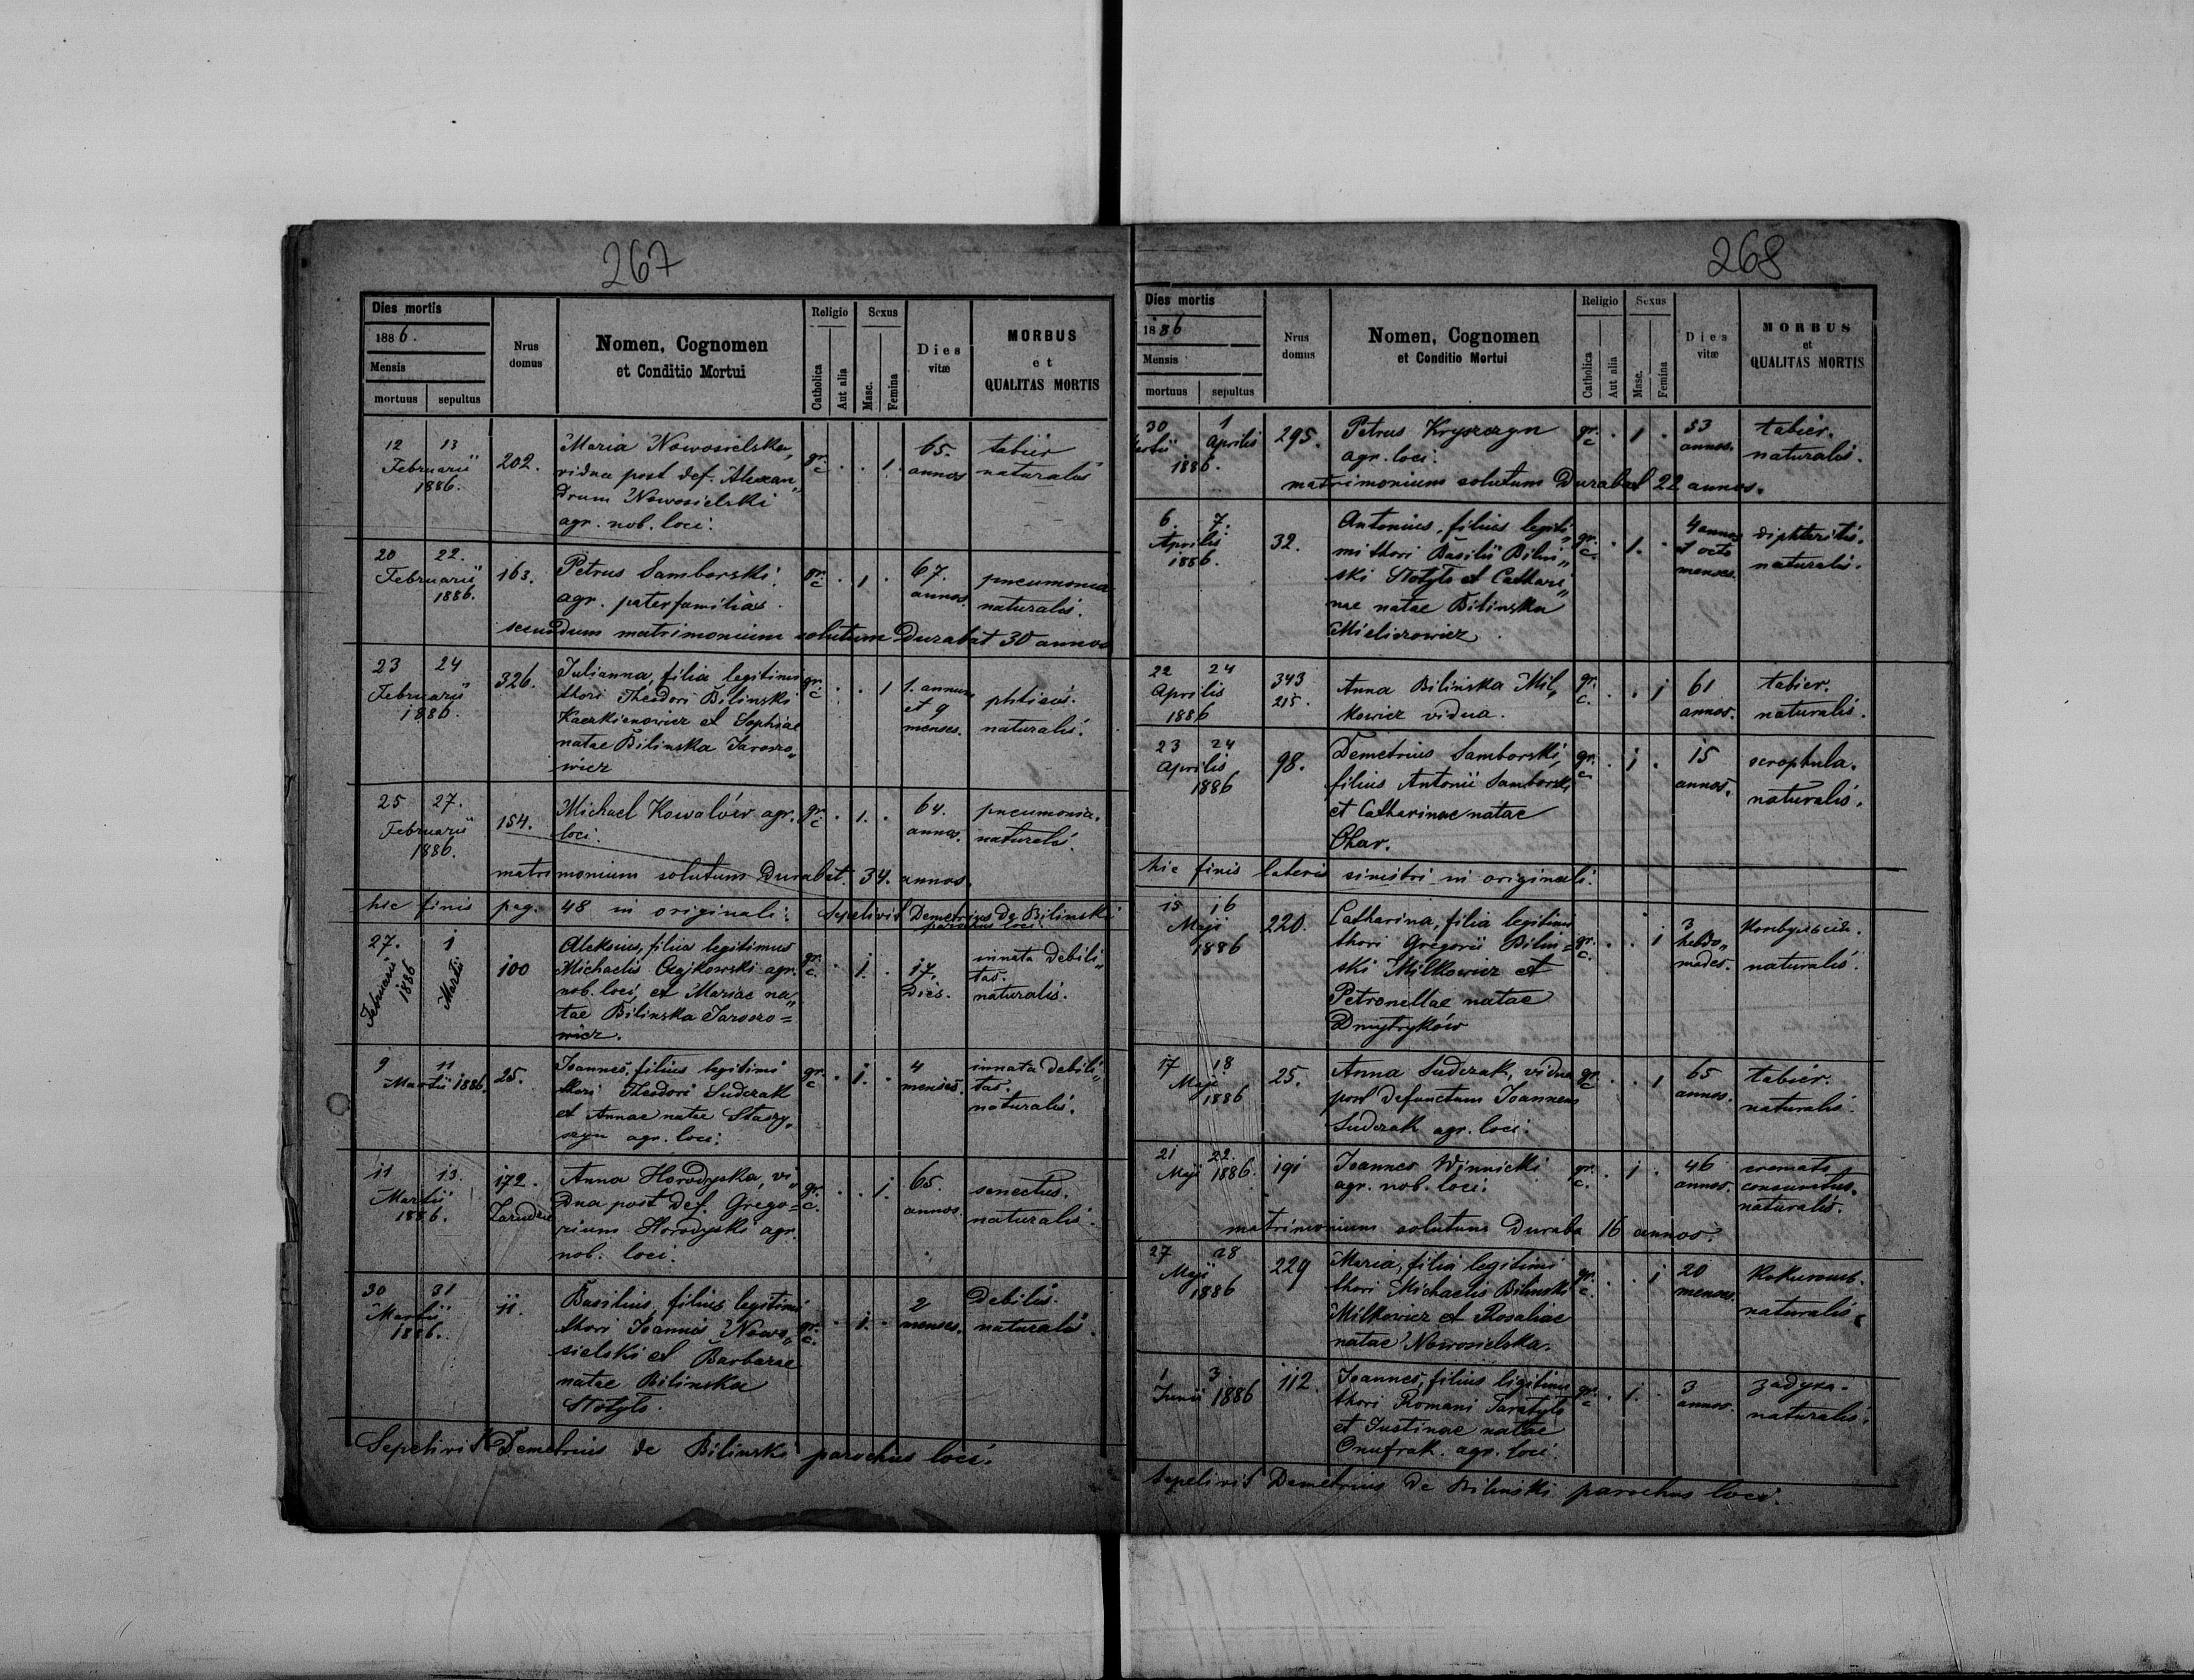 267
Dies mortis
1886.
Mensis
mortuus sepultus
Nrus domus
Nomen, Cognomen
et Conditio Mortui
Religio
Catholica
Aut alia
Sexus
Masc.
Femina
Dies vitæ
MORBUS
et
QUALITAS MORTIS
12 13 Februarii 1886. 202. gr. c. 1. 65. annos
Maria Nowosielska,
vidua post def. Alexan„
drum Nowosielski
agr. nob. loci.
naturalis
20 22. Februarii 1886. 163. gr. c. 1 67. annos.
Petrus Samborski
agr. paterfamilias.
pneumonia
naturalis.
secundum matrimonium solutum durabat 30 annos
23 24 Februarii 1886. 326. gr. c. 1 1. annum et 9 menses.
Julianna, filia legitimi
thori Theodori Bilinski
Kaczkienowicz et Sophiae
natae Bilinska Jaroszo„
wicz
phtisis.
naturalis.
25 27. Februarii 1886. 154. gr. c. 1. 64. annos.
Michael Kowalów agr.
loci.
pneumonia.
naturalis.
matrimonium solutum durabat. 34. annos.
hic finis pag. 48 in originali. Sepelivit Demetrius de Bilinski
parochus loci.
27. Februarii 1886 1 Martii 100 gr. c. 1. 17. dies.
Aleksius, filius legitimus
Michaelis Czajkowski agr.
nob. loci, et Mariae na„
tae Bilinska Jaroszo=
wicz.
innata debili„
tas.
naturalis.
9 11 Martii 1886. 25. gr. c. 1. 4 menses.
Joannes, filius legitimi
thori Theodori Sudczak
et Annae natae
agr. loci.
innata debili„
tas.
naturalis.
11 13. Martii 1886. 172. gr. c. 1. 65. annos.
Anna Horodyska, vi„
dua post def. Grego=
rium Horodyski agr.
nob. loci.
senectus.
naturalis.
30 31 Martii 1886. 11. gr. c. 1. 2 menses.
Basilius, filius legitimi
thori Joannis Nowo„
sielski et Barbarae
natae Bilinska
Stotylo.
debilis.
naturalis.
Sepelivit Demetrius de Bilinski parochus loci.
268
Dies mortis
1886
Mensis
mortuus sepultus
Nrus domus
Nomen, Cognomen
et Conditio Mortui
Religio
Catholica
Aut alia
Sexus
Masc.
Femina
Dies vitæ
MORBUS
et
QUALITAS MORTIS
30 Martii 1 Aprilis 1886. 295. gr. c. 1 53 annos.
Petrus Kryszczyn
agr. loci.
naturalis.
matrimonium solutum durabat 22 annos.
6. 7. Aprilis 1886. 32. gr. c. 1. 4 annos et octo menses.
Antonius, filius legiti„
mi thori Basilii Bilin„
ski Stotylo et Cathari„
nae natae Bilinska
diphteritis.
naturalis.
22 24 Aprilis 1886 343 215. gr. c. 1 61 annos.
Anna Bilinska Mil„
kowicz vidua.
naturalis.
23 24 Aprilis 1886 98. gr. c. 1. 15 annos.
Demetrius Samborski,
filius Antonii Samborski
et Catharinae natae
Char.
scrophula.
naturalis.
hic finis lateris sinistri in originali.
15 16 Maji 1886 220. gr. c. 1 3 hebdo„ mades.
Catharina, filia legitimi
thori Gregorii Bilin=
ski Milkowicz et
Petronellae natae
Dmytryków
naturalis.
17 18 Maji 1886 25. gr. c. 1 65 annos.
Anna Sudczak, vidua
post defunctum Joannem
Sudczak agr. loci.
naturalis.
21 22. Maji 1886. 191 gr. c. 1. 46 annos.
Joannes Winnicki
agr. nob. loci.
cremato
consumtus.
naturalis.
matrimonium solutum duraba 16 annos.
27 28 Maji 1886 229 gr. c. 1 20 menses.
Maria, filia legitimi
thori Michaelis Bilinski
Milkowicz et Rosaliae
natae Nowosielska.
naturalis.
1 3. Junii 1886 112. gr. c. 1. 3 annos.
Joannes, filius ligitimi
thori Romani
et Justinae natae
Onufrak. agr. loci.
задуха.
naturalis.
Sepelivit Demetrius de Bilinski parochus loci.